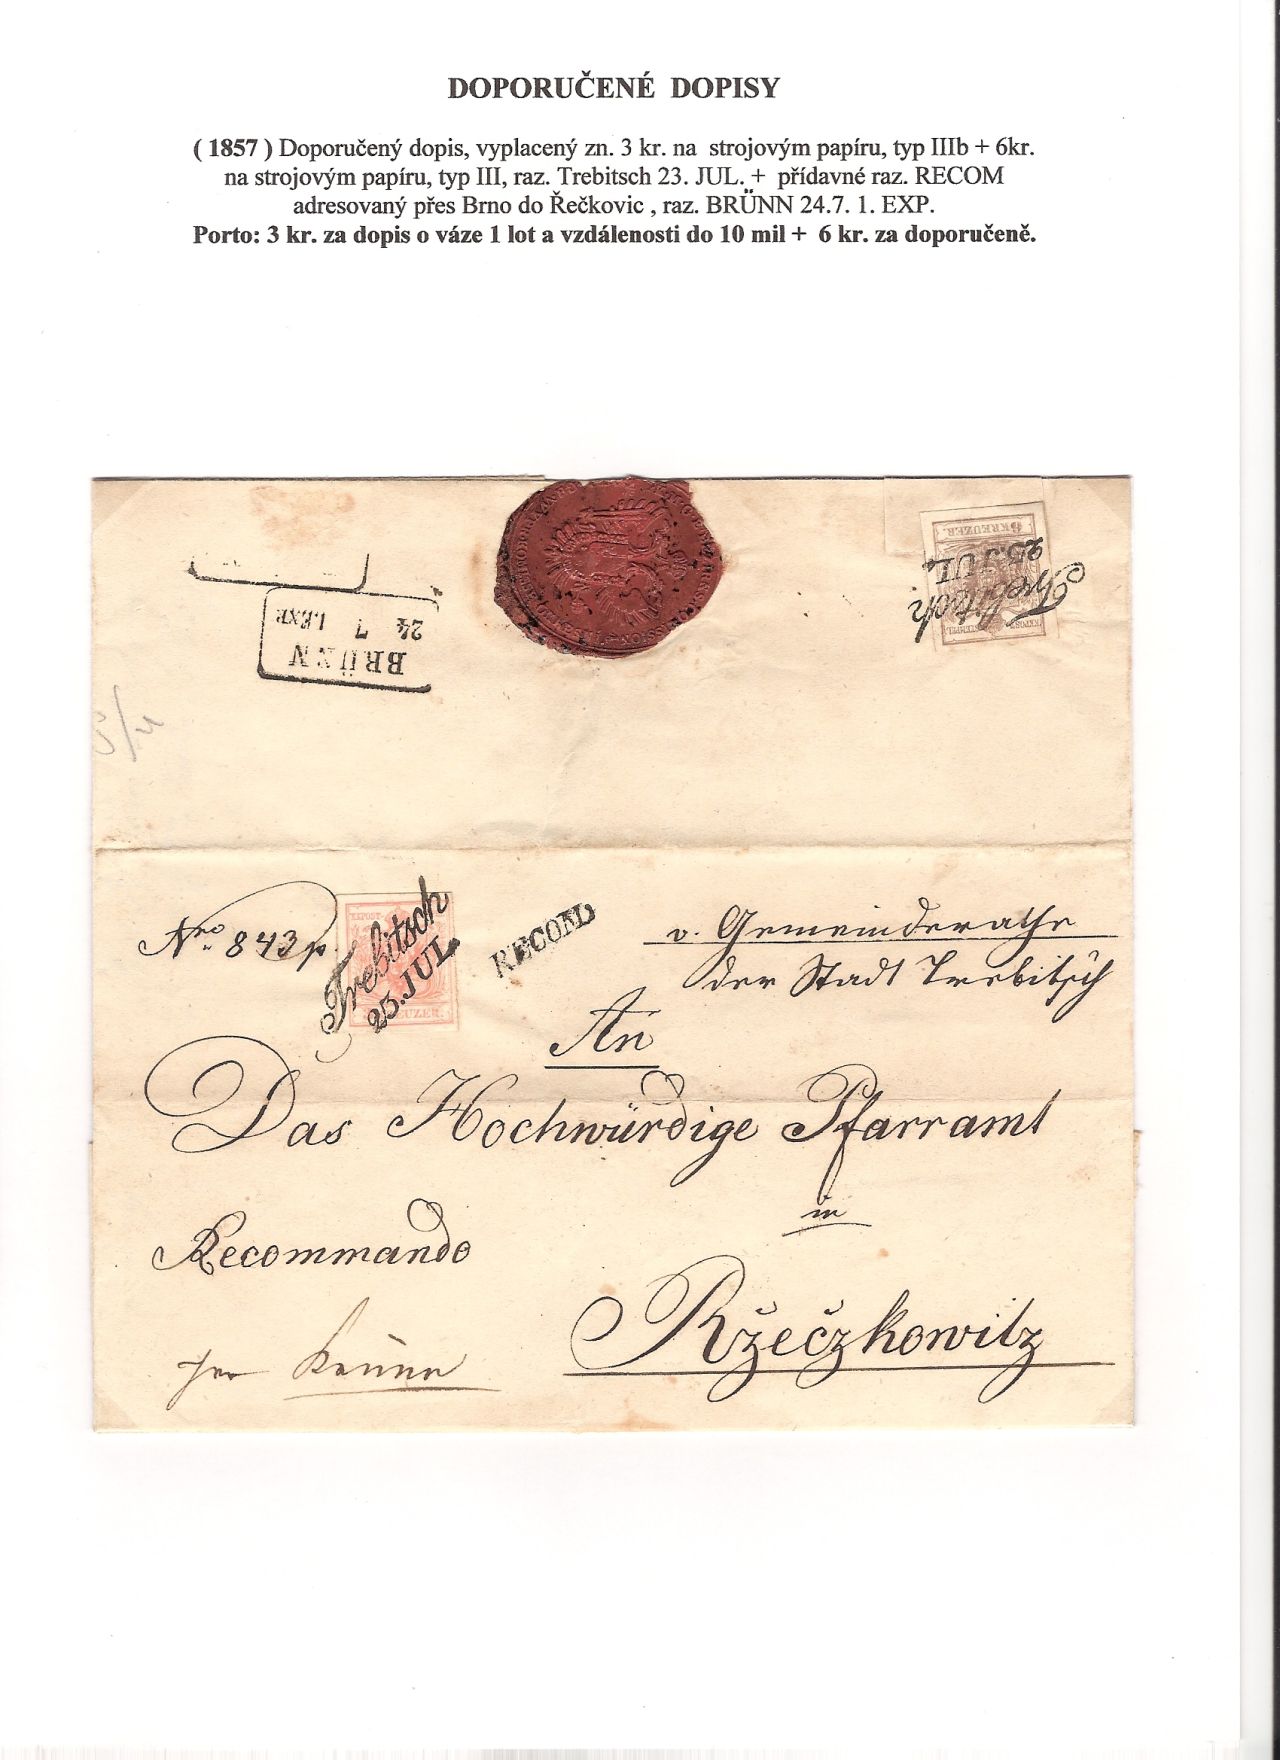 DOPORUČENÉ DOPISY
( 1857 ) Doporučený dopis, vyplacený zn. 3 kr. na strojovým papíru, typ IIIb + 6kr.
na strojovým papíru, typ III, raz. Trebitsch 23. JUL. + přídavné raz. RECOM
adresovaný přes Brno do Řečkovic , raz. BRÜNN 24.7. 1. EXP.
Porto: 3 kr. za dopis o váze 1 lot a vzdálenosti do 10 mil + 6 kr. za doporučeně.
6 KREUZER.
Trebitsch
23. JUL.
KKPOST-
STEMPEL
BRÜNN
24 7 1.EXP.
Nro 843 p.
KKPOST-
Trebitsch
23. JUL.
KREUZER.
RECOM
v. Gemeinderathe
der Stadt Trebitsch
An
Das Hochwürdige Pfarramt
in
Recommando
Ržečzkowitz
per Brünn